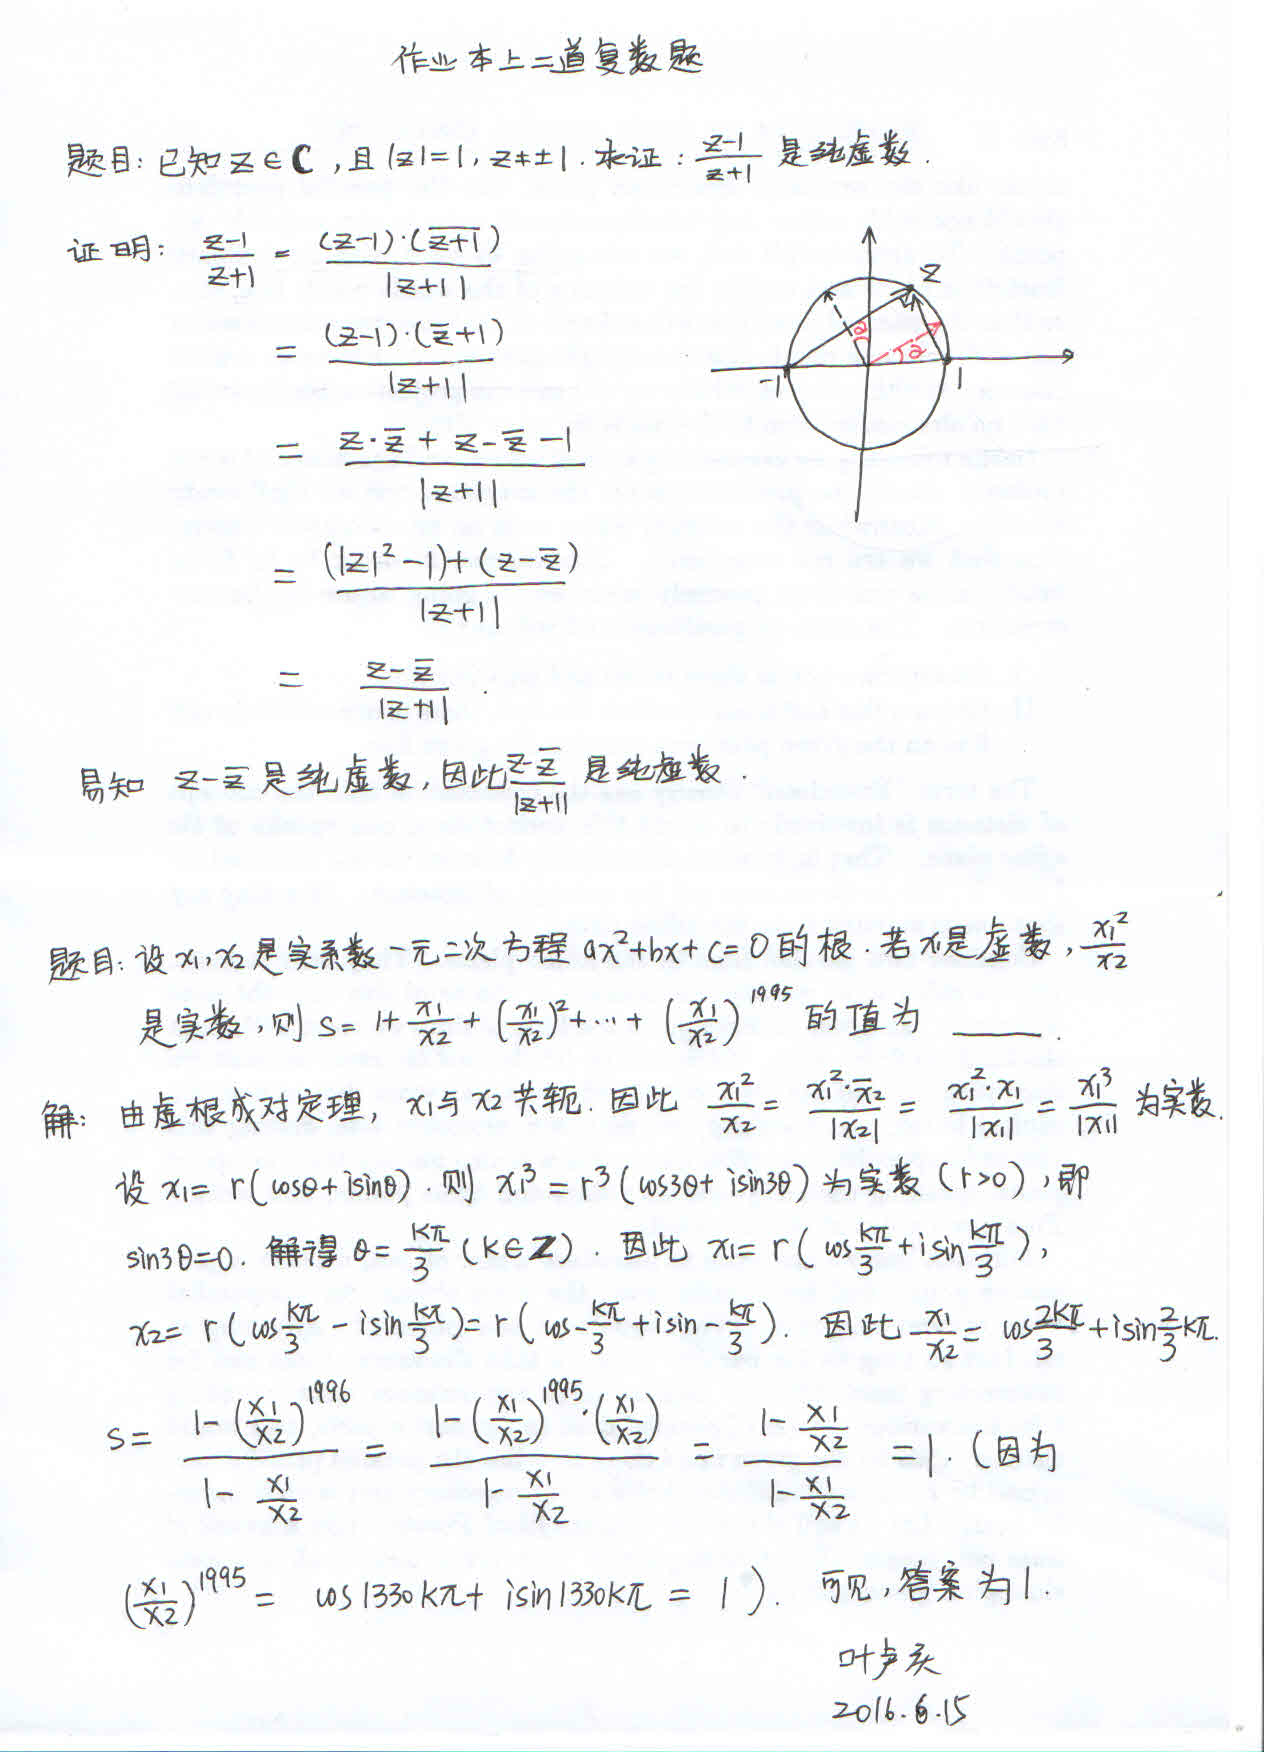 作业本上二道复数题
题目: 已知 z∈C, 且 |z|=1, z≠±1. 求证: \frac{z-1}{z+1} 是纯虚数.
证明: \frac{z-1}{z+1} = \frac{(z-1)·(\overline{z+1})}{|z+1|}
= \frac{(z-1)·(\overline{z}+1)}{|z+1|}
= \frac{z·\overline{z}+z-\overline{z}-1}{|z+1|}
= \frac{(|z|^2-1)+(z-\overline{z})}{|z+1|}
= \frac{z-\overline{z}}{|z+1|}.
z
a
a
-1
1
易知 z-\overline{z} 是纯虚数, 因此 \frac{z-\overline{z}}{|z+1|} 是纯虚数.
题目: 设 x1, x2 是实系数一元二次方程 ax²+bx+c=0 的根. 若 x1是虚数, \frac{x1^2}{x2}
是实数, 则 S= 1+\frac{x1}{x2}+(\frac{x1}{x2})^2+…+(\frac{x1}{x2})^{1995} 的值为 ____.
解: 由虚根成对定理, x1与 x2 共轭. 因此 \frac{x1^2}{x2} = \frac{x1^2·\overline{x2}}{|x2|} = \frac{x1^2·x1}{|x1|} = \frac{x1^3}{|x1|} 为实数.
设 x1= r(cosθ+isinθ). 则 x1^3= r^3(cos3θ+ isin3θ) 为实数 (r>0), 即
sin3θ=0. 解得 θ= \frac{kπ}{3} (k∈Z). 因此 x1= r(cos\frac{kπ}{3}+isin\frac{kπ}{3}),
x2= r(cos\frac{kπ}{3}-isin\frac{kπ}{3})= r(cos-\frac{kπ}{3}+isin-\frac{kπ}{3}). 因此 \frac{x1}{x2}= cos\frac{2kπ}{3}+isin\frac{2}{3}kπ.
S= \frac{1-(\frac{x1}{x2})^{1996}}{1-\frac{x1}{x2}} = \frac{1-(\frac{x1}{x2})^{1995}·(\frac{x1}{x2})}{1-\frac{x1}{x2}} = \frac{1-\frac{x1}{x2}}{1-\frac{x1}{x2}} =1. (因为
(\frac{x1}{x2})^{1995} = cos1330kπ+ isin1330kπ = 1). 可见, 答案为1.
叶卢庆
2016.6.15